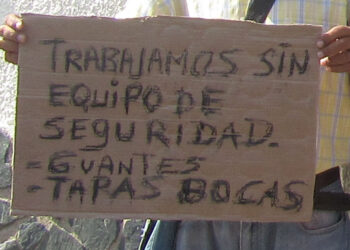 TRABAJAMOS SIN
EQUIPO DE
SEGURIDAD.
- GUANTES
- TAPAS BOCAS